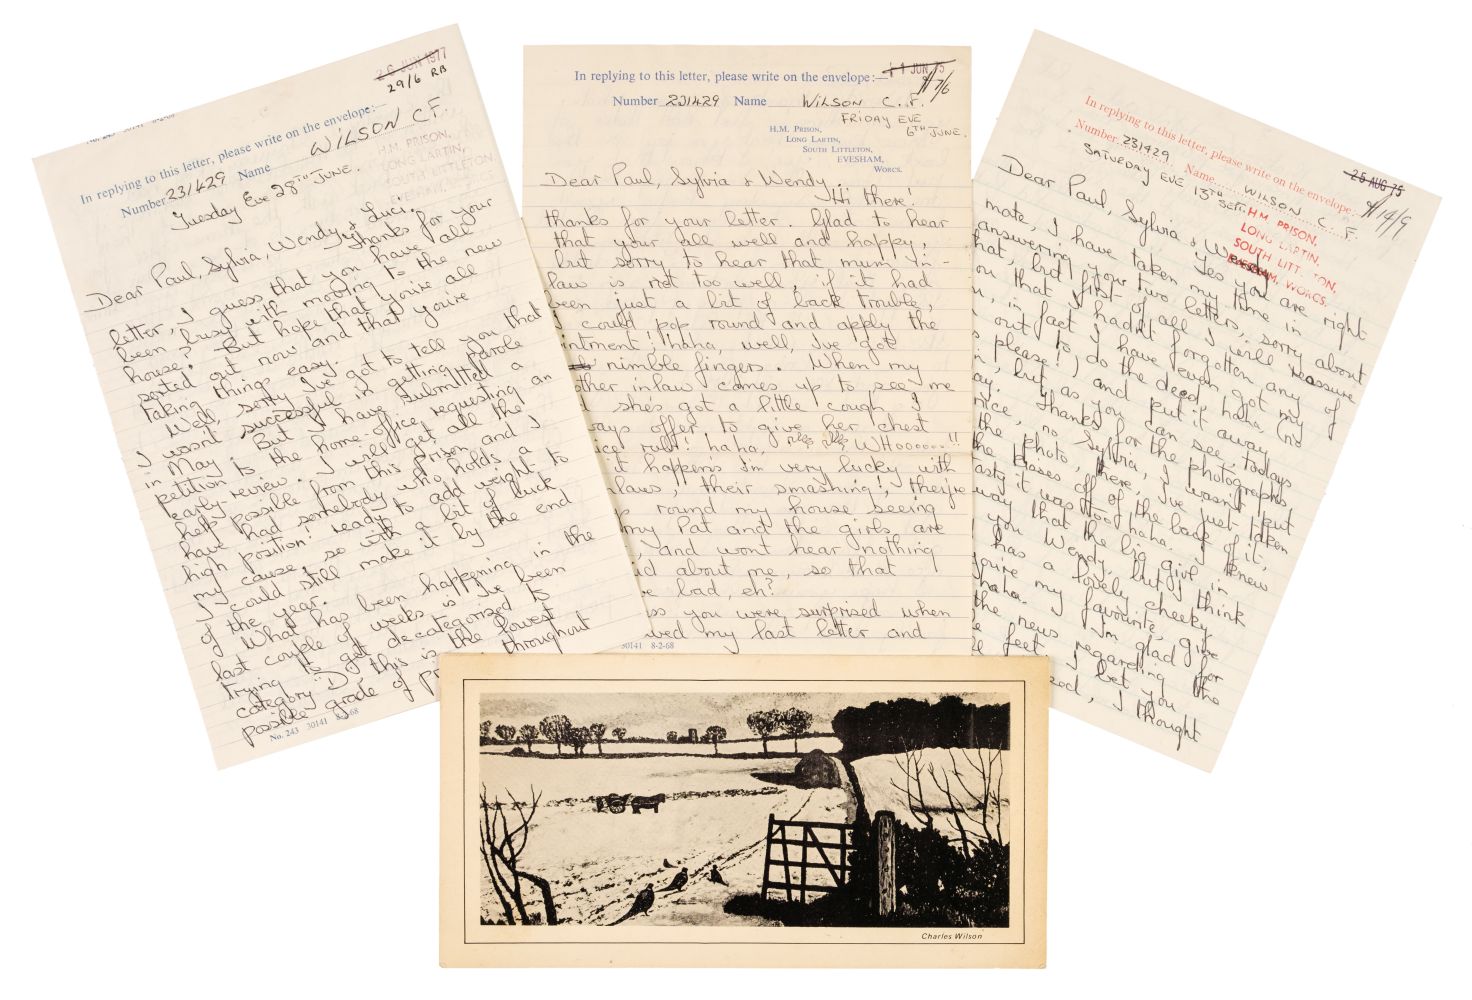 26 JUN 1977
29/6 RB
In replying to this letter, please write on the envelope:—
Number 231429 Name WILSON C.F.
H.M. PRISON,
LONG LARTIN,
SOUTH LITTLETON,
Tuesday Eve 28TH JUNE.
Dear Paul, Sylvia, Wendy & Luci,
Thanks for your
letter, I guess that you have all
been busy with moving to the new
house? But hope that you're all
sorted out now and that you're
taking things easy.
Well, sorry I've got to tell you that
I wasn't successful in getting parole
in May. But I have submitted a
petition to the home-office requesting an
early review. I will get all the
help possible from this prison and I
have had somebody who holds a
high position! ready to add weight to
my cause, so with a bit of luck
I could still make it by the end
of the year.
What has been happening in the
last couple of weeks is I've been
trying to get decategorised to
category "D" this is the lowest
possible grade of throughout
No. 243 30141 8-2-68
11 JUN 75
In replying to this letter, please write on the envelope:—
Number 231429 Name WILSON C. F.
FRIDAY EVE
6TH JUNE.
H.M. PRISON,
LONG LARTIN,
SOUTH LITTLETON,
EVESHAM,
WORCS.
Dear Paul, Sylvia & Wendy,
Hi there!
thanks for your letter. Glad to hear
that your all well and happy,
but sorry to hear that mum-in-
law is not too well, if it had
been just a bit of back trouble,
I could pop round and apply the
ointment! haha, well, I've got
nimble fingers. When my
mother inlaw comes up to see me
she's got a little cough I
always offer to give her chest
rub! haha, WHOoooo!!
it happens I'm very lucky with
inlaws, their smashing!, they're
round my house seeing
my Pat and the girls are
and wont hear nothing
about me, so that
bad, eh?
you were surprised when
my last letter and
30141 8-2-68
25 AUG 75
14/9
In replying to this letter, please write on the envelope:—
Number 231429 Name WILSON C. F.
SATURDAY EVE 13TH SEPT.
H.M. PRISON,
LONG LARTIN,
SOUTH LITTLETON,
EVESHAM, WORCS.
Dear Paul, Sylvia & Wendy
Yes you are right
mate, I have taken my time in
answering your two letters, sorry about
that, but first of all I will reassure
you that I hadn't forgotten any of
in fact I have even got my
out to do the decor, haha (no
please!) and put it away
but as you can see, todays
thanks for the photographs
nice, no Sylvia, I wasn't put
the photo, I've just taken
the poses off of the back of it,
it was too haha. I knew
way that the big give in.
you Wendy, but I think
has a lovely cheeky
you're my favourite, give
haha. I'm glad for
the news regarding the
feet I bet you
I thought
Charles Wilson